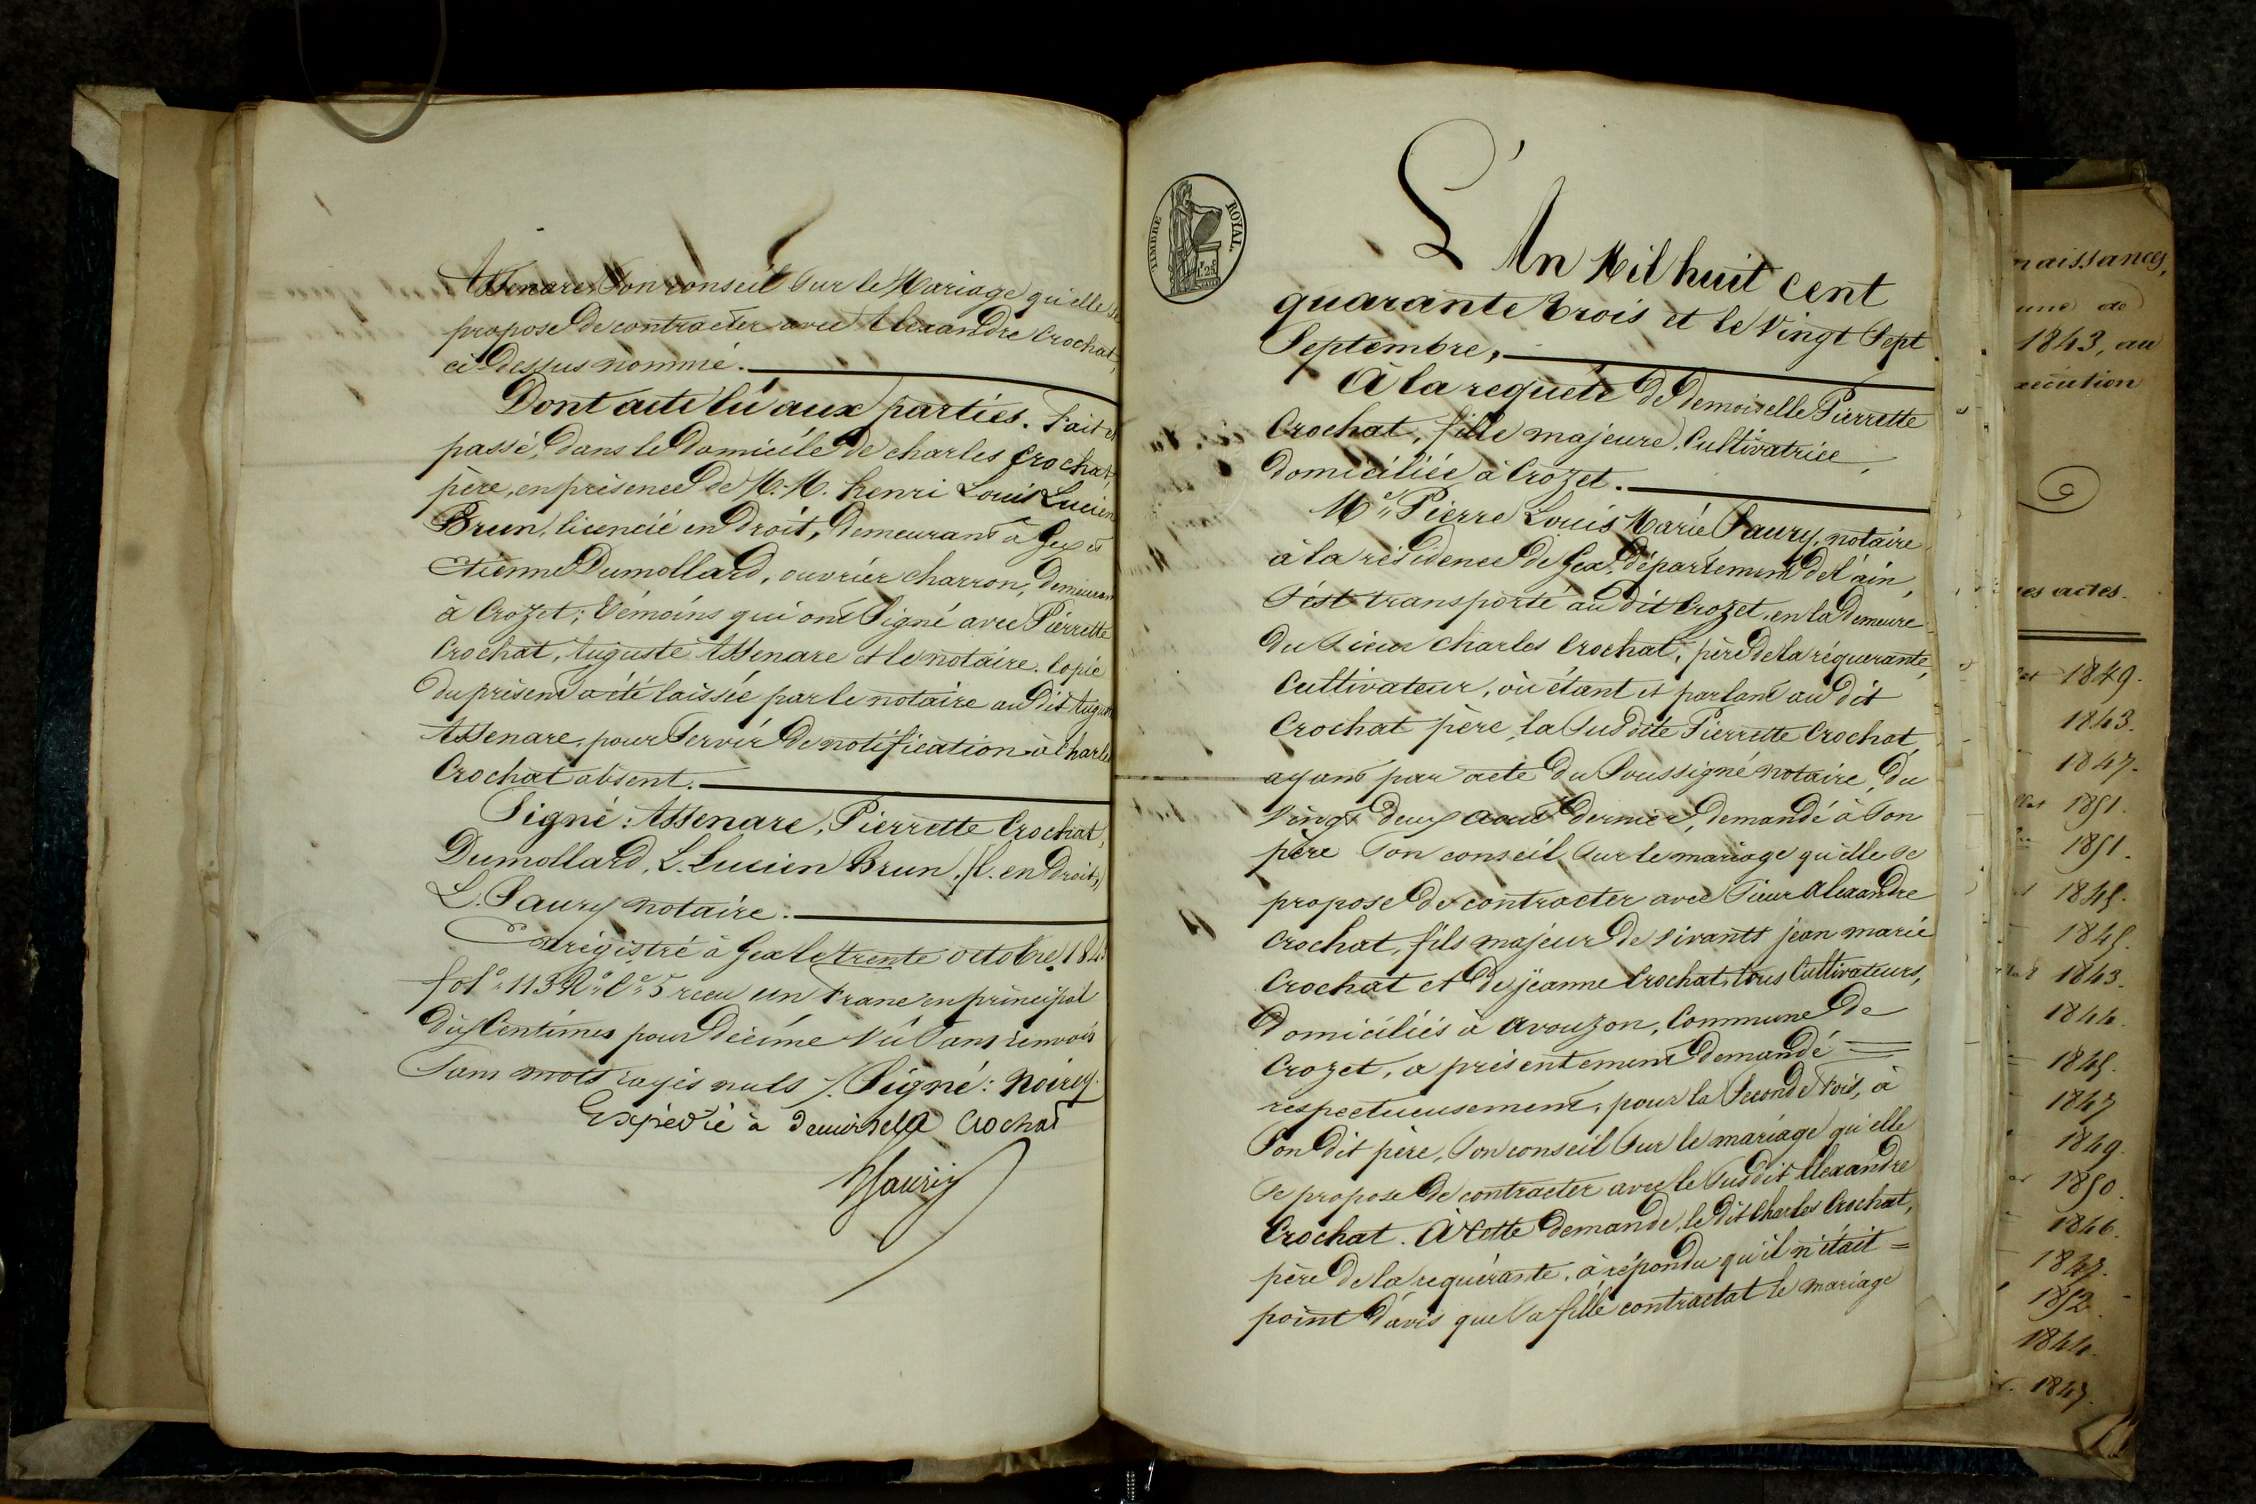 Assenare, Son conseil Sur le Mariage qu'elle se
propose de contracter avec Alexandre Crochat,
ci-dessus nommé.
Dont acte lu aux parties. Fait et
passé, dans le domicile de charles Crochat,
père, en présence de M.M. henri Louis Lucien
Brun, licencié en droit, demeurant à Gex et
Etienne Dumollard, ouvrier charron, demeurant
à Crozet; témoins qui ont Signé avec Pierrette
Crochat, Auguste Assenare et le notaire. Copie
du présent a été laissée par le notaire au dit Auguste
Assenare, pour Servir de notification à Charles
Crochat absent.
Signé: Assenare, Pierrette Crochat,
Dumollard, L. Lucien Brun, (l. en droit)
L. Saury notaire.
Enrégistré à Gex le trente octobre 184
fol° 113 R° C° 5 reçu un franc en principal
dix Centimes pour décime Vu Sans renvois
Sans mots rayés nuls /. Signé: Noirey.
Expédié à demoiselle Crochat
LSaury
TIMBRE ROYAL
1F 25C
L'An Mil huit cent
quarante trois et le Vingt Sept
Septembre,
À la requête de demoiselle Pierrette
Crochat, fille majeure, Cultivatrice,
domiciliée à Crozet.
Me Pierre Louis Marie Saury, notaire
à la résidence de Gex, département de l'ain,
S'est transporté au dit Crozet, en la demeure
du Sieur Charles Crochat, père de la réquerante,
Cultivateur, où étant et parlant au dit
Crochat père, la Susdite Pierrette Crochat,
ayant par acte du Soussigné notaire, du
Vingt deux août dernier, demandé à Son
père Son conseil Sur le mariage qu'elle se
propose de contracter avec Sieur Alexandre
Crochat, fils majeur de vivants jean marie
Crochat et de jeanne Crochat, tous Cultivateurs,
domiciliés à Avouzon, Commune de
Crozet, a présentement demandé =
respectueusement, pour la Seconde fois, à
Son dit père, Son conseil Sur le mariage qu'elle
se propose de contracter avec le Susdit Alexandre
Crochat. À cette demande, le dit Charles Crochat,
père de la requérante, a répondu qu'il n'était =
point d'avis que Sa fille contractat le mariage
naissances,
1843, au
actes.
1849.
1843.
1847.
1851.
1851.
1845.
1845.
1843.
1844.
1845.
1847
1849.
1850.
1846.
1847.
1852.
1844.
1847.